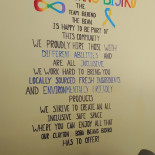 THE
TEAM BEHIND
THE BEAN
IS HAPPY TO BE PART OF
THIS COMMUNITY
WE PROUDLY HIRE THOSE WITH
DIFFERENT ABILITIES AND
ARE ALL INCLUSIVE
WE WORK HARD TO BRING YOU
LOCALLY SOURCED FRESH INGREDIENTS
AND ENVIRONMENTALLY FRIENDLY
PRODUCTS
WE STRIVE TO CREATE AN ALL
INCLUSIVE SAFE SPACE
WHERE YOU CAN ENJOY ALL THAT
OUR BEANS BISTRO
HAS TO OFFER!